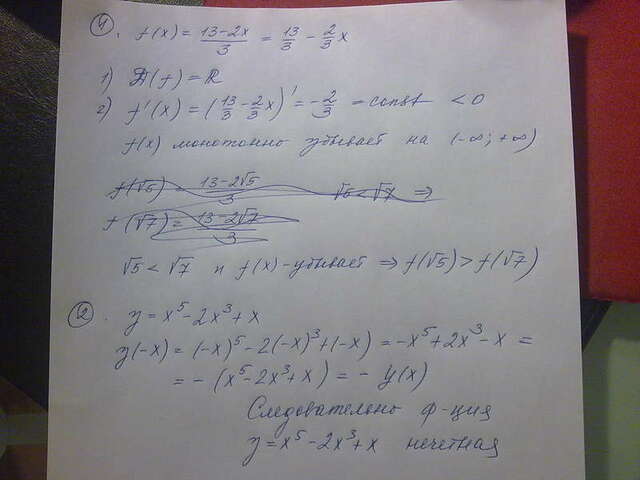 1. f(x) = (13-2x)/3 = 13/3 - 2/3 x
1) D(f) = R
2) f'(x) = (13/3 - 2/3 x)' = -2/3 = const < 0
f(x) монотонно убывает на (-∞; +∞)
f(√5) = (13-2√5)/3 √5 < √7 ⇒
f(√7) = (13-2√7)/3
√5 < √7 и f(x) - убывает ⇒ f(√5) > f(√7)
2. y = x⁵ - 2x³ + x
y(-x) = (-x)⁵ - 2(-x)³ + (-x) = -x⁵ + 2x³ - x =
= - (x⁵ - 2x³ + x) = - y(x)
Следовательно ф-ция
y = x⁵ - 2x³ + x нечетная